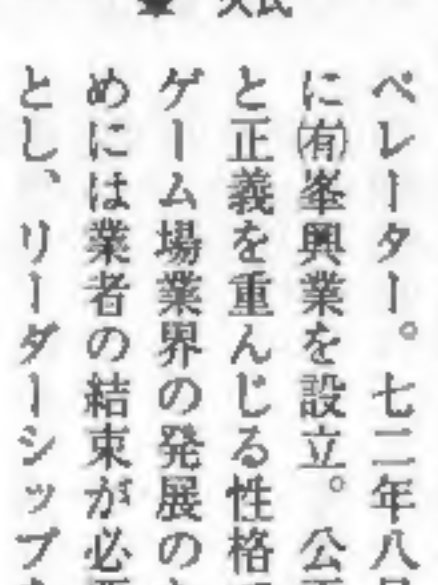 ペレーター。七二年八
に㈲峯興業を設立。公
と正義を重んじる性格
ゲーム場業界の発展の
めには業者の結束が必
とし、リーダーシップ